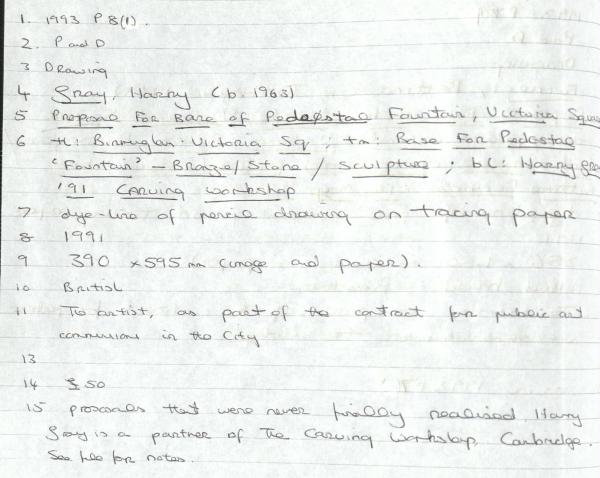 1. 1993 P 8(1).
2. P and D
3 Drawing
4 Gray, Harry (b. 1963)
5 Proposal For Base of Pedestal Fountain, Victoria Squa
6 tl: Birmingham: Victoria Sq; tm: Base For Pedestal
'Fountain' - Bronze/Stone / Sculpture; bl: Harry Gra
'91 Carving Workshop
7 dye-line of pencil drawing on tracing paper
8 1991
9 390 x 595 mm (image and paper).
10 British
11 The artist, as part of the contract for public art
commissions in the City
13
14 £50
15 proposals that were never finally realised. Harry
Gray is a partner of The Carving Workshop, Cambridge.
See file for notes.